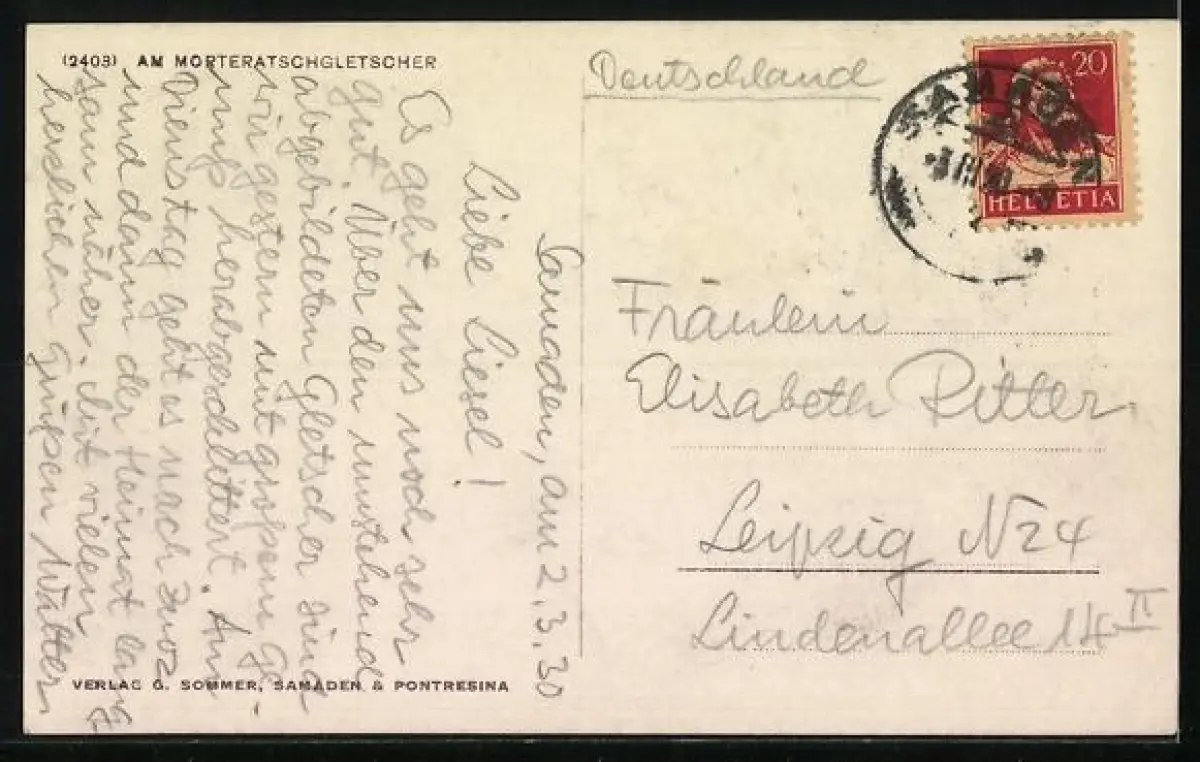 (2403) AM MORTERATSCHGLETSCHER
Samaden, am 2.3.30
Liebe Liesel!
Es geht uns noch sehr
gut. Über den umstehend
abgebildeten Gletscher sind
wir gestern mit großem Ge-
herabgeschlittert. Am
Dienstag geht es nach Zuoz
und dann der Heimat lang
sam näher. Mit vielen
herzlichen Grüßen Walter
VERLAG G. SOMMER, SAMADEN & PONTRESINA
Deutschland
20
HELVETIA
SAMADEN
Fräulein
Elisabeth Ritter
Leipzig N24
Lindenallee 14 II